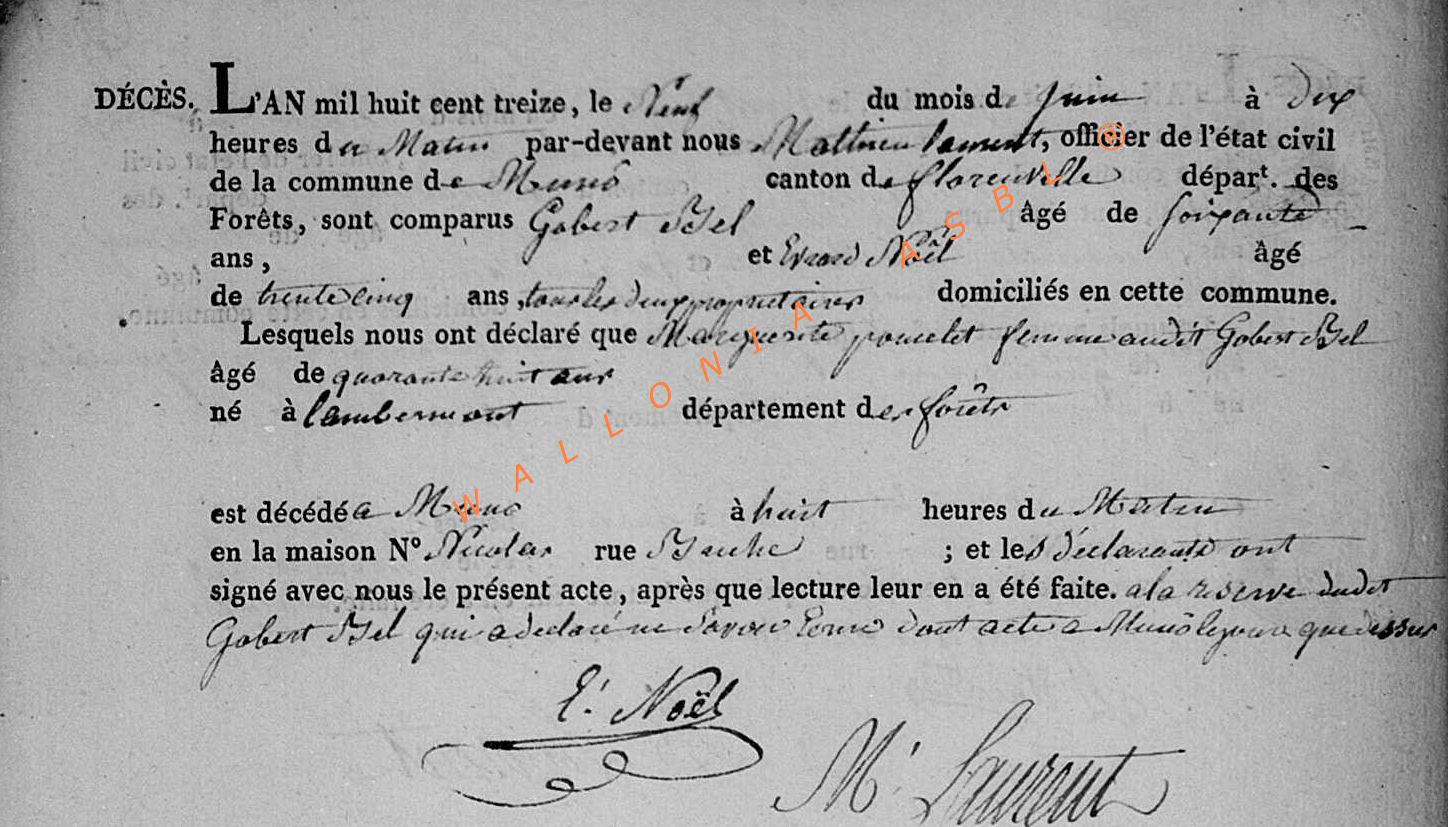 DÉCÈS. L'AN mil huit cent treize, le Neuf du mois de juin à dix
heures du Matin par-devant nous Mathieu laurent, officier de l'état civil
de la commune de Muno canton de florenville départ. des
Forêts, sont comparus Gobert Bel âgé de soixante
ans, et Evrard Noël âgé
de trente cinq ans, tous les deux proprietaires domiciliés en cette commune.
Lesquels nous ont déclaré que Marguerite poncelet femme audit Gobert Bel
âgé de quarante huit ans
né à lambermont département des forêts
est décédé a Muno à huit heures du Matin
en la maison N° Nicolas rue ; et les déclarants ont
signé avec nous le présent acte, après que lecture leur en a été faite. a la reserve dudit
Gobert Bel qui a declaré ne savoir Ecrire dont acte a Muno les jour que dessus
E. Noël
M. Laurent
WALLONIA ASBL ©